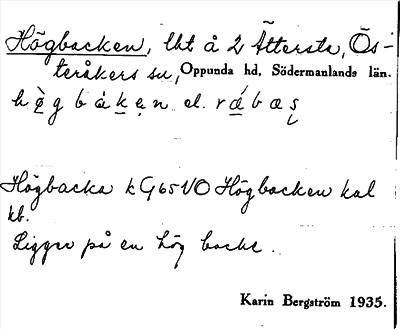 Högbacken, lht å 2 Ättersta, Ös-
teråkers sn, Oppunda hd, Södermanlands län.
högbaken el.
Högbacka kG65VO Högbacken kal
kb.
Ligger på en hög backe.
Karin Bergström 1935.